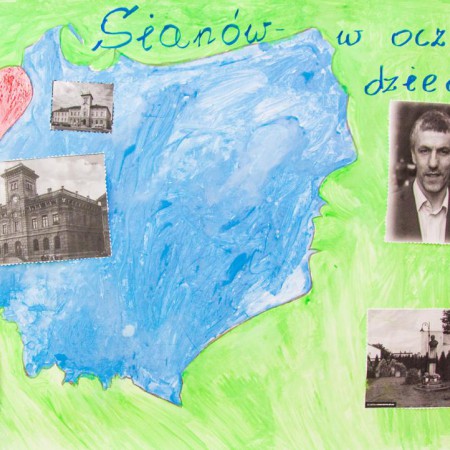 Sianów- w ocz
dziec